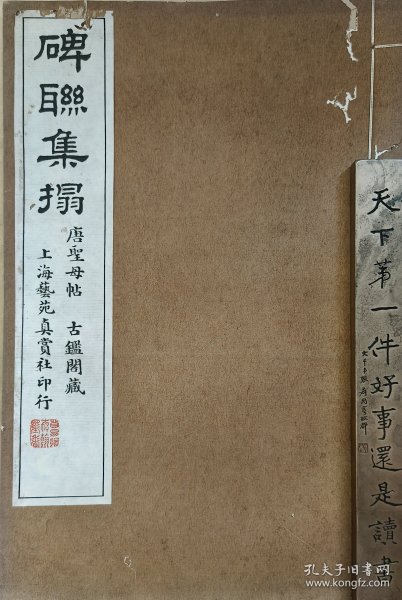 碑聯集搨
唐聖母帖 古鑑閣藏
上海藝苑真賞社印行
天下第一件好事還是讀書
孔夫子旧书网
www.kongfz.com